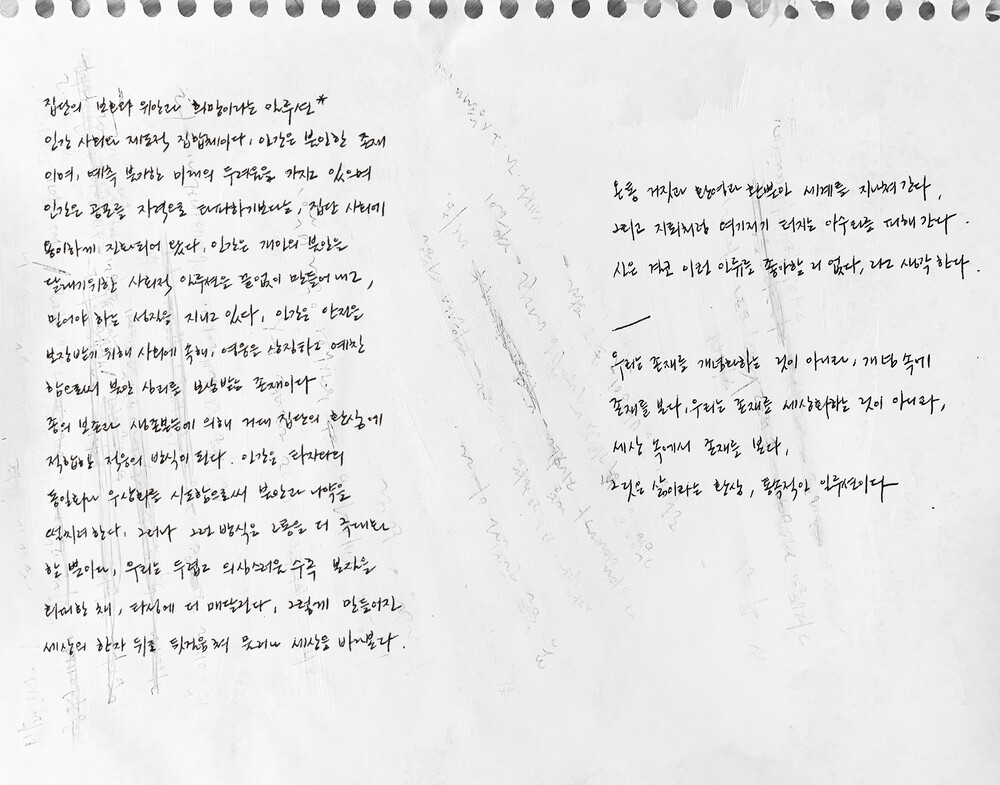 집단의 보호와 위안과 희망이라는 일루션*
인간 사회는 제도적 집합체이다, 인간은 불안한 존재
이며, 예측 불가한 미래의 두려움을 가지고 있으며
인간은 공포를 자각으로 타파하기보다는, 집단 사회에
용이하게 진화되어 왔다, 인간은 개인의 불안을
달래기위한 사회적 일루션은 끝없이 만들어 내고,
믿어야 하는 성질을 지니고 있다, 인간은 안전을
보장받기 위해 사회에 속해, 영웅을 상징하고 예찬
함으로써 불안 심리를 보상받는 존재이다.
종의 보존과 생존본능에 의해 거대 집단의 환상에
적합한 적응의 방식이 된다. 인간은 타자와의
동일화나 우상화를 시도함으로써 불안과 나약을
떨치려한다, 그러나 그런 방식은 고통을 더 극대화
할 뿐이다, 우리는 두렵고 의심스러운 수록 본질을
회피한 채, 타성에 더 매달린다, 그렇게 만들어진
세상의 한자 뒤로 뒷걸음쳐 물러나 세상을 바라본다.
온통 거짓과 환영과 환분인 세계를 지나쳐 간다,
그리고 지뢰처럼 여기저기 터지는 아수라를 피해 간다.
신은 결코 이런 인류를 좋아할 리 없다, 라고 생각 한다.
우리는 존재를 개념화하는 것이 아니라, 개념 속에
존재를 본다, 우리는 존재를 세상화하는 것이 아니라,
세상 속에서 존재를 본다,
그것은 삶이라는 환상, 통속적인 일루션이다